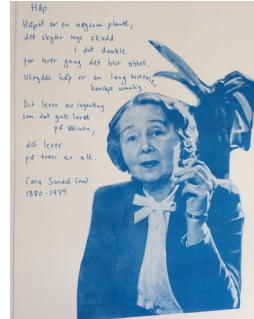 Håp
Håpet er en nøysom plante,
det skyter nye skudd
i det dunkle
for hver gang det blir ribbet.
Utrydde håp er en lang historie,
kanskje umulig.
Det lever av ingenting
som det gule lavet
på steinen,
det lever
på tross av alt.
Cora Sandel
1880-1974